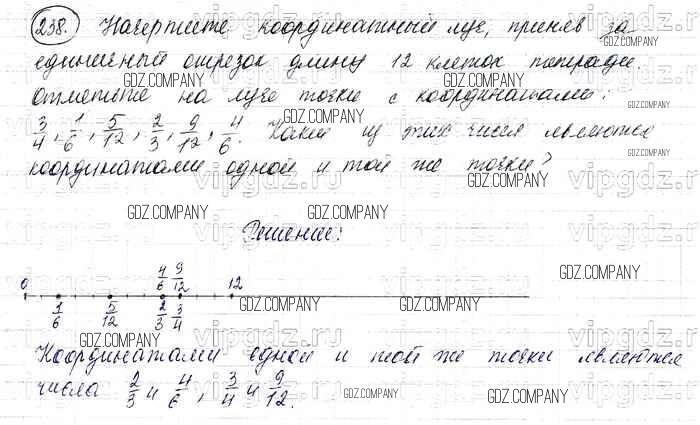 238. Начертите координатный луч, приняв за
единичный отрезок длину 12 клеток тетради.
Отметьте на луче точки с координатами:
3/4, 1/6, 5/12, 2/3, 9/12, 4/6. Какие из этих чисел являются
координатами одной и той же точки?
Решение:
4/6 9/12
0 12
1/6 5/12 2/3 3/4
Координатами одной и той же точки являются
числа 2/3 и 4/6, 3/4 и 9/12.
GDZ.COMPANY
vipgdz.ru